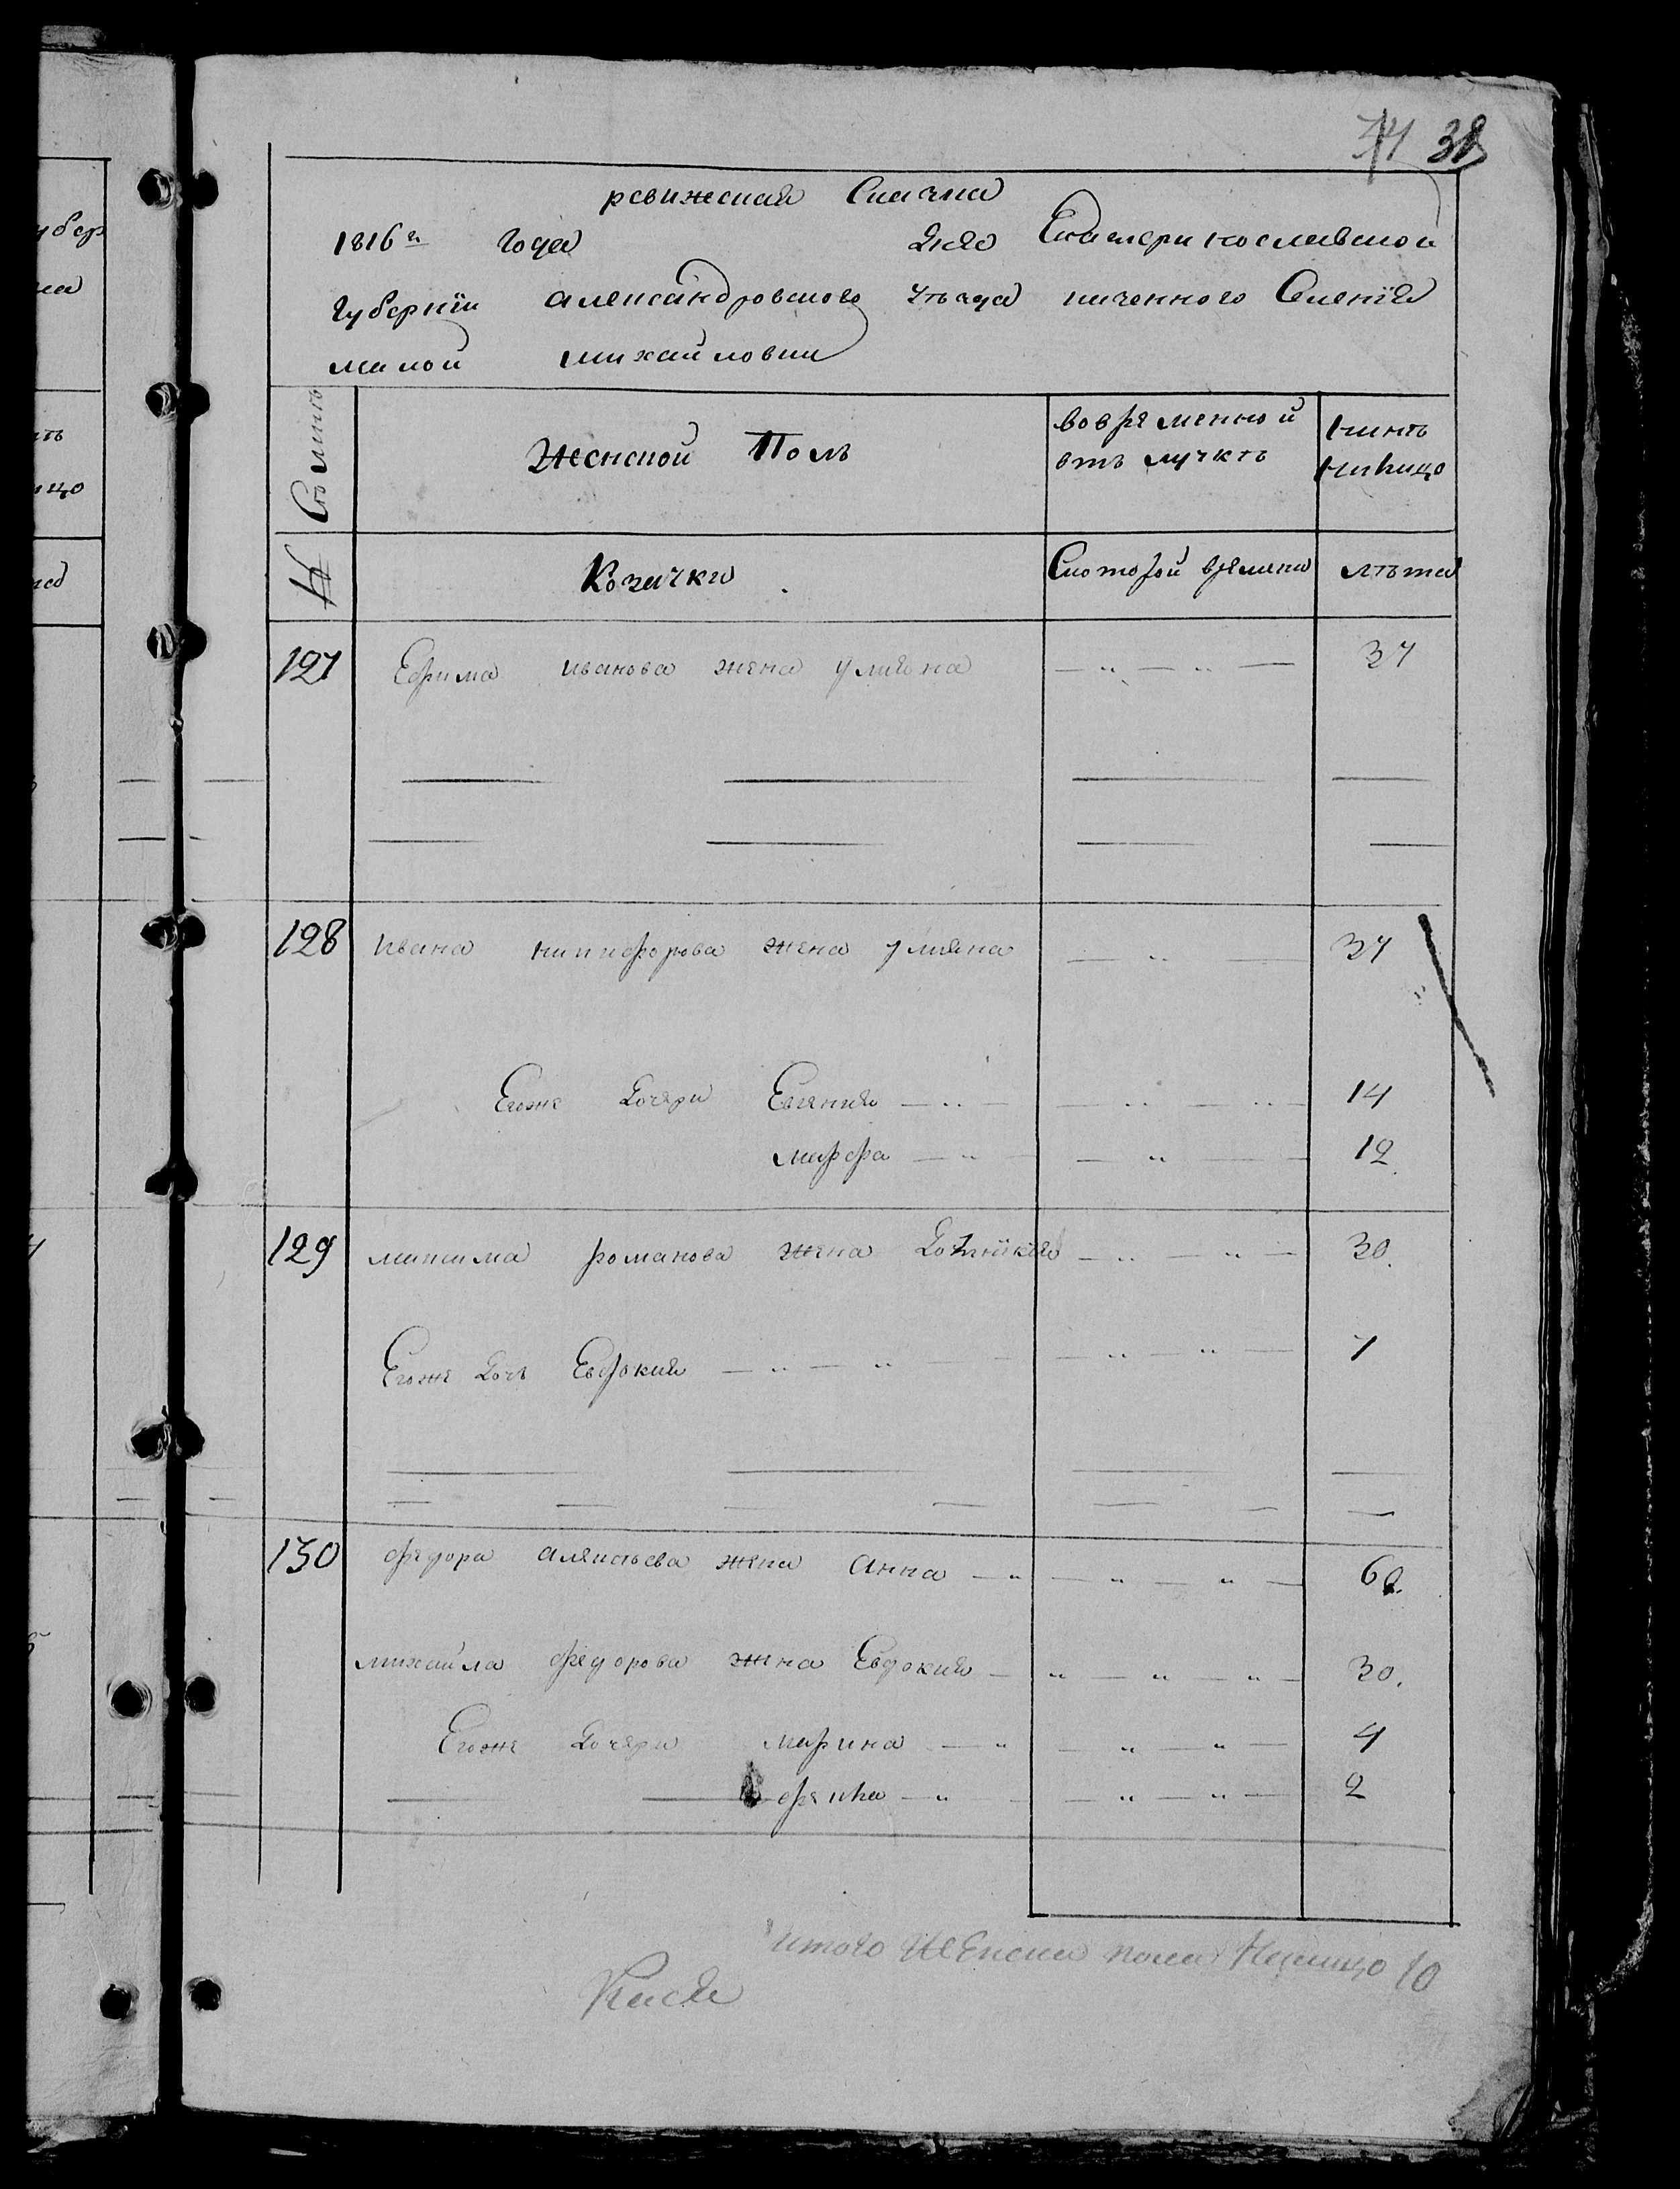 38
ревижская Сказка
1816го Года дня Екатеринославской
Губернїи александровского уѣзда казенного Селенїя
малой михайловки
Семьи
Женской Полъ
вовременной отълучкѣ
нынѣ налицо
№
Козачки
Скоторой время
лѣта
127 Ефима иванова жена улияна 37
128 Ивана никифорова жена улияна 37
Егоже дочери Евгения 14
марфа 12
129 максима романова жена 30
Егоже дочь Евдокия 7
130 федора алексѣева жена анна
михайла федорова жена Евдокия 30.
Егоже дочери марина 4
2
итого женска пола налицо 10